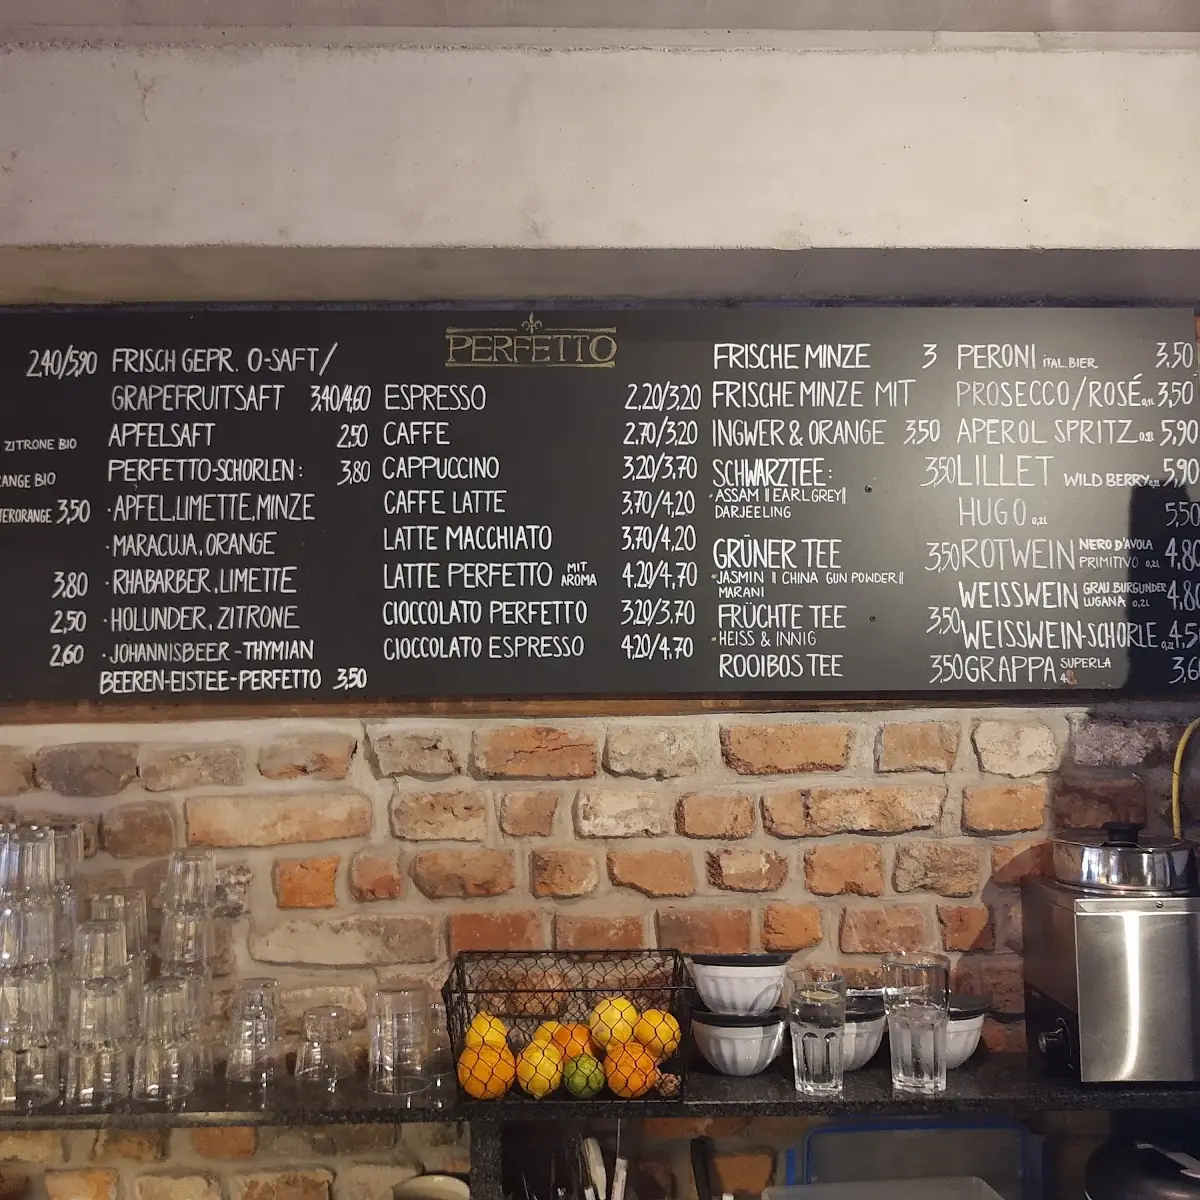 2,40/5,90
ZITRONE BIO
ANGE BIO
TERORANGE 3,50
3,80
2,50
2,60
FRISCH GEPR. O-SAFT/
GRAPEFRUITSAFT 3,40/4,60
APFELSAFT 2,50
PERFETTO-SCHORLEN: 3,80
·APFEL,LIMETTE,MINZE
·MARACUJA,ORANGE
·RHABARBER,LIMETTE
·HOLUNDER,ZITRONE
·JOHANNISBEER-THYMIAN
BEEREN-EISTEE-PERFETTO 3,50
PERFETTO
ESPRESSO 2,20/3,20
CAFFE 2,70/3,20
CAPPUCCINO 3,20/3,70
CAFFE LATTE 3,70/4,20
LATTE MACCHIATO 3,70/4,20
LATTE PERFETTO MIT AROMA 4,20/4,70
CIOCCOLATO PERFETTO 3,20/3,70
CIOCCOLATO ESPRESSO 4,20/4,70
FRISCHE MINZE 3
FRISCHE MINZE MIT
INGWER & ORANGE 3,50
SCHWARZTEE: 3,50
·ASSAM || EARL GREY||
DARJEELING
GRÜNER TEE 3,50
·JASMIN || CHINA GUN POWDER||
MARANI
FRÜCHTE TEE 3,50
·HEISS & INNIG
ROOIBOS TEE 3,50
PERONI ITAL.BIER 3,50
PROSECCO/ROSÉ 0,1L 3,50
APEROL SPRITZ 0,2L 5,90
LILLET WILD BERRY 0,2L 5,90
HUGO 0,2L 5,50
ROTWEIN NERO D'AVOLA PRIMITIVO 0,2L 4,80
WEISSWEIN GRAUBURGUNDER LUGANA 0,2L 4,80
WEISSWEIN-SCHORLE 0,2L 4,5
GRAPPA SUPERLA 3,6